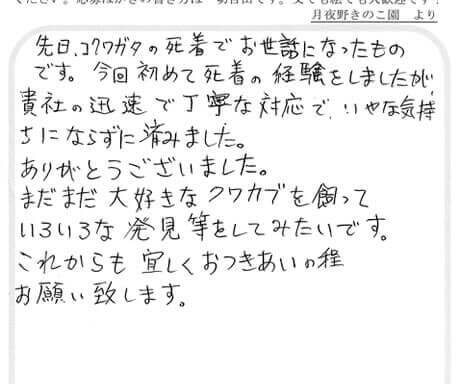 ください。応募はがきの書き方は一切自由です。文でも絵でも大歓迎です！
月夜野きのこ園　より
先日、コクワガタの死着でお世話になったもの
です。今回初めて死着の経験をしましたが、
貴社の迅速で丁寧な対応で、いやな気持
ちにならずに済みました。
ありがとうございました。
まだまだ大好きなクワカブを飼って
いろいろな発見等をしてみたいです。
これからも宜しくおつきあいの程
お願い致します。